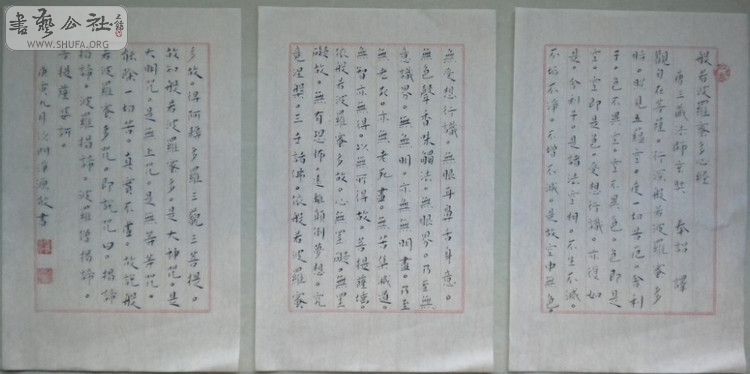 般若波羅蜜多心經
唐三藏法師玄奘 奉詔 譯
觀自在菩薩。行深般若波羅蜜多
時。照見五蘊空。度一切苦厄。舍利
子。色不異空。空不異色。色即是
空。空即是色。受想行識。亦復如
是。舍利子。是諸法空相。不生不滅。
不垢不淨。不增不減。是故空中無色。
無受想行識。無眼耳鼻舌身意。
無色聲香味觸法。無眼界。乃至無
意識界。無無明。亦無無明盡。乃至
無老死。亦無老死盡。無苦集滅道。
無智亦無得。以無所得故。菩提薩埵。
依般若波羅蜜多故。心無罣礙。無罣
礙故。無有恐怖。遠離顛倒夢想。究
竟涅槃。三世諸佛。依般若波羅蜜
多故。得阿耨多羅三藐三菩提。
故知般若波羅蜜多。是大神咒。是
大明咒。是無上咒。是無等等咒。
能除一切苦。真實不虛。故說般
若波羅蜜多咒。即說咒曰。揭諦
揭諦。波羅揭諦。波羅僧揭諦。
菩提薩婆訶。
庚寅九月 敬書
書藝公社
WWW.SHUFA.ORG